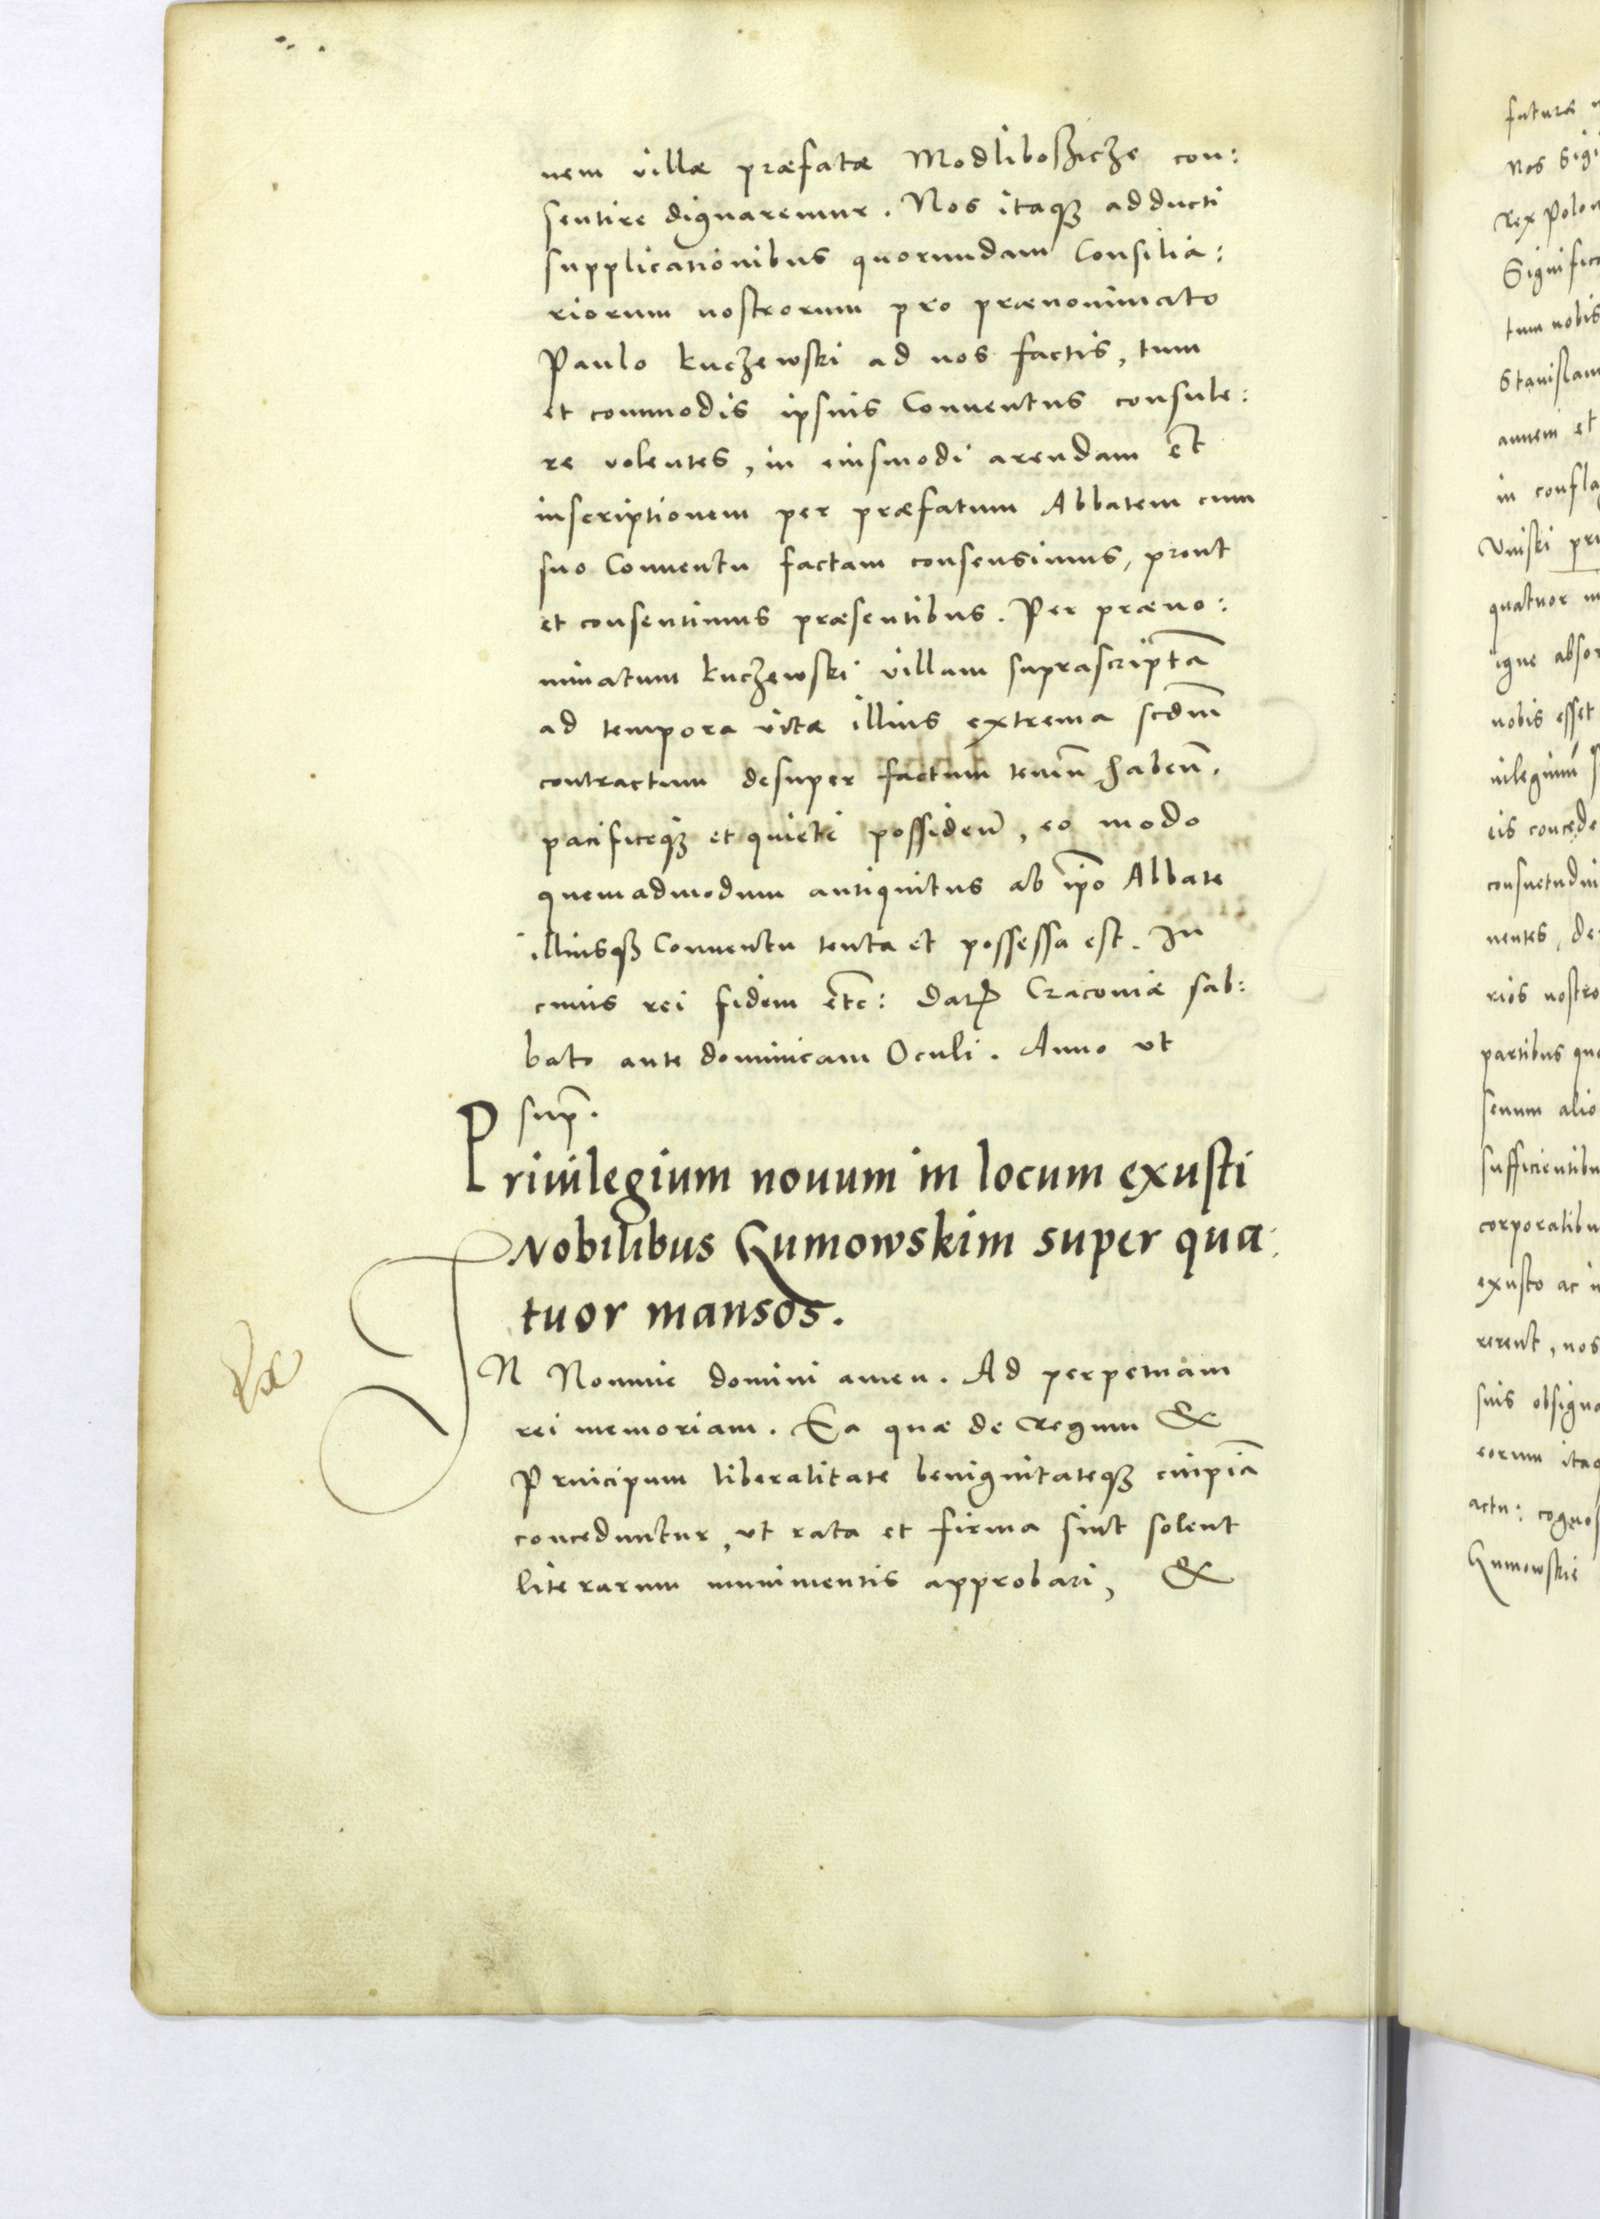 nem villæ præfatæ Modliboszicze con:
sentire dignaremur. Nos itaqꝫ adducti
supplicationibus quorundam Consilia:
riorum nostrorum pro prænominato
Paulo Kuczewski ad nos factis, tum
et commodis ipsius Conuentus consule:
re volentes, in eiusmodi arendam et
inscriptionem per præfatum Abbatem cum
suo Conuentu factam consensimus, prout
et consentimus præsentibus. Per præno:
minatum Kuczewski villam suprascriptā
ad tempora vitæ illius extrema scdm̄
contractum desuper factum tenen̄ haben̄.
pacificeqꝫ et quiete possiden̄, eo modo
quemadmodum antiquitus ab ip̄o Abbate
illiusqꝫ Conuentu tenta et possessa est. In
cuius rei fidem etc: Datꝝ Cracouiæ sab:
bato ante dominicam Oculi. Anno vt
sup̄.
Priuilegium nouum in locum exusti
Nobilibus Gumowskim super qua:
tuor mansos.
IN Nomine domini amen. Ad perpetuam
rei memoriam. Ea quæ de Regum &
Principum liberalitate benignitateqꝫ cuipiā
conceduntur, vt rata et firma sint solent
literarum munimentis approbari, &
futuræ
Nos Sigi
Rex Polon
Signific
tum nobis
Stanislaum
annem et
in confla
quatuor m
igne absor
nobis esset
uilegium s
eis concede
consuetudin
nentes, de
rios nostro
partibus qua
senum alio
sufficientibu
corporalibu
exusto ac i
rerent, nos
suis obsigna
eorum itaq
actu: cognos
Gumowskie